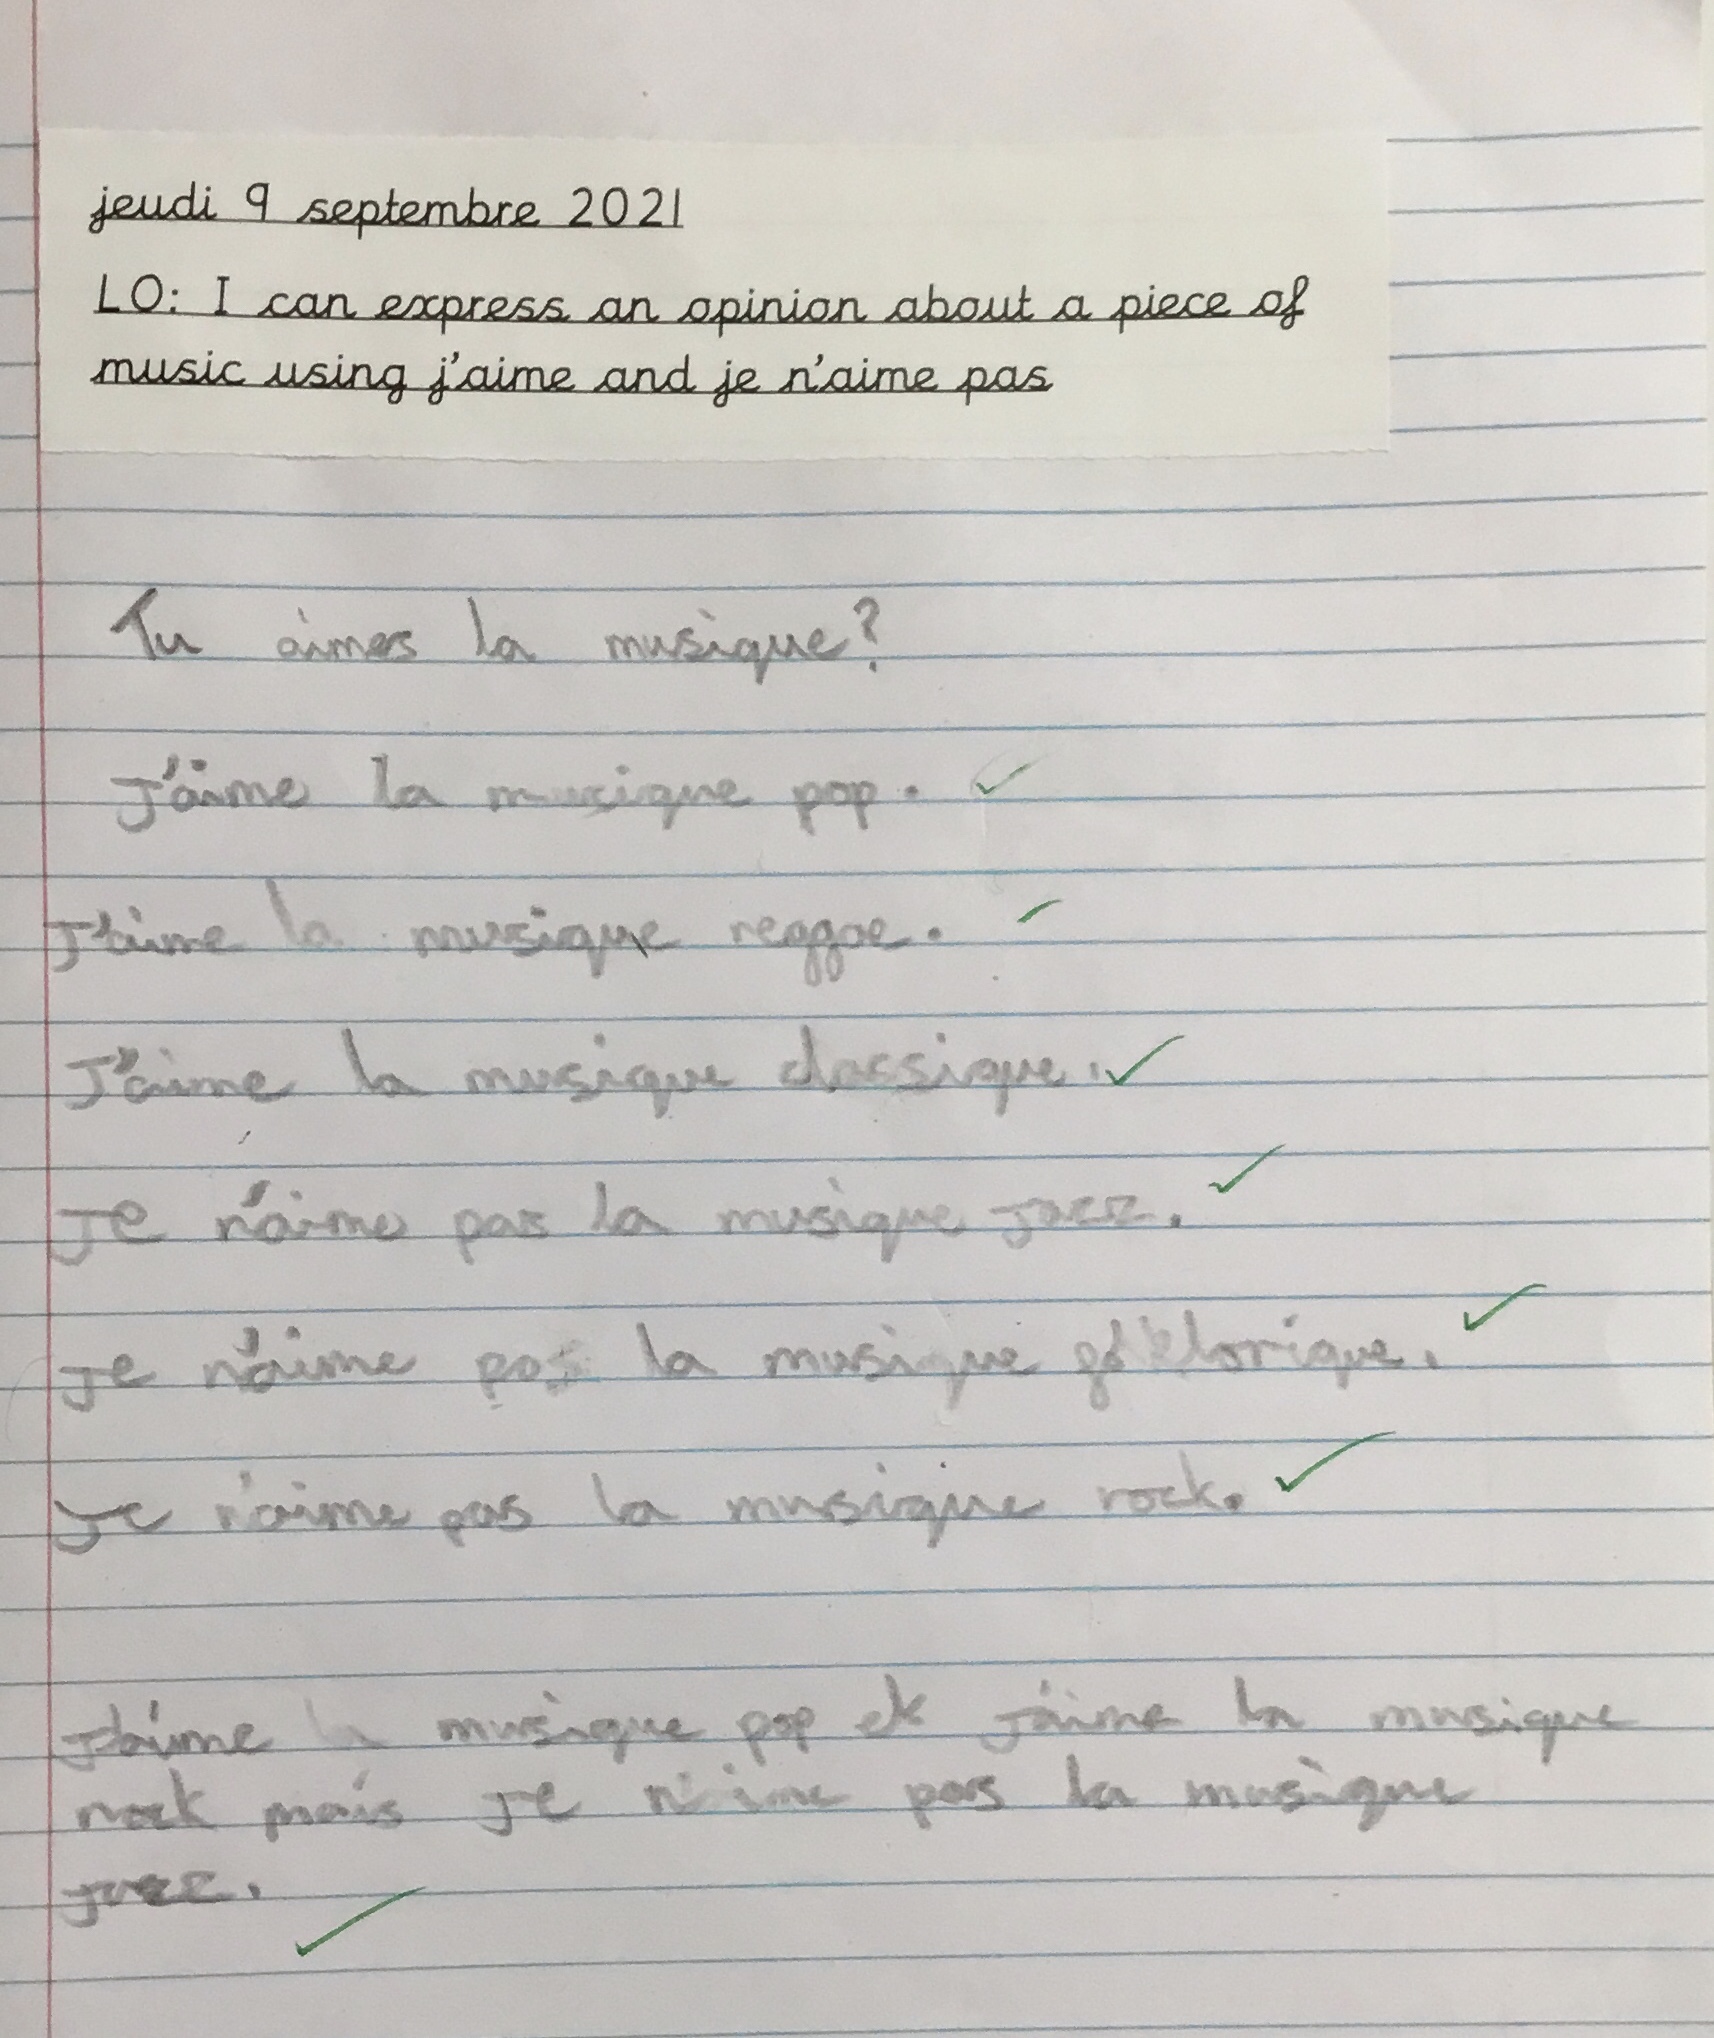 jeudi 9 septembre 2021
LO: I can express an opinion about a piece of
music using j'aime and je n'aime pas
Tu aimes la musique?
J'aime la musique pop.
J'aime la musique reggae.
J'aime la musique classique.
Je n'aime pas la musique jazz.
Je n'aime pas la musique folklorique.
Je n'aime pas la musique rock.
J'aime la musique pop et j'aime la musique
rock mais je n'aime pas la musique
jazz.